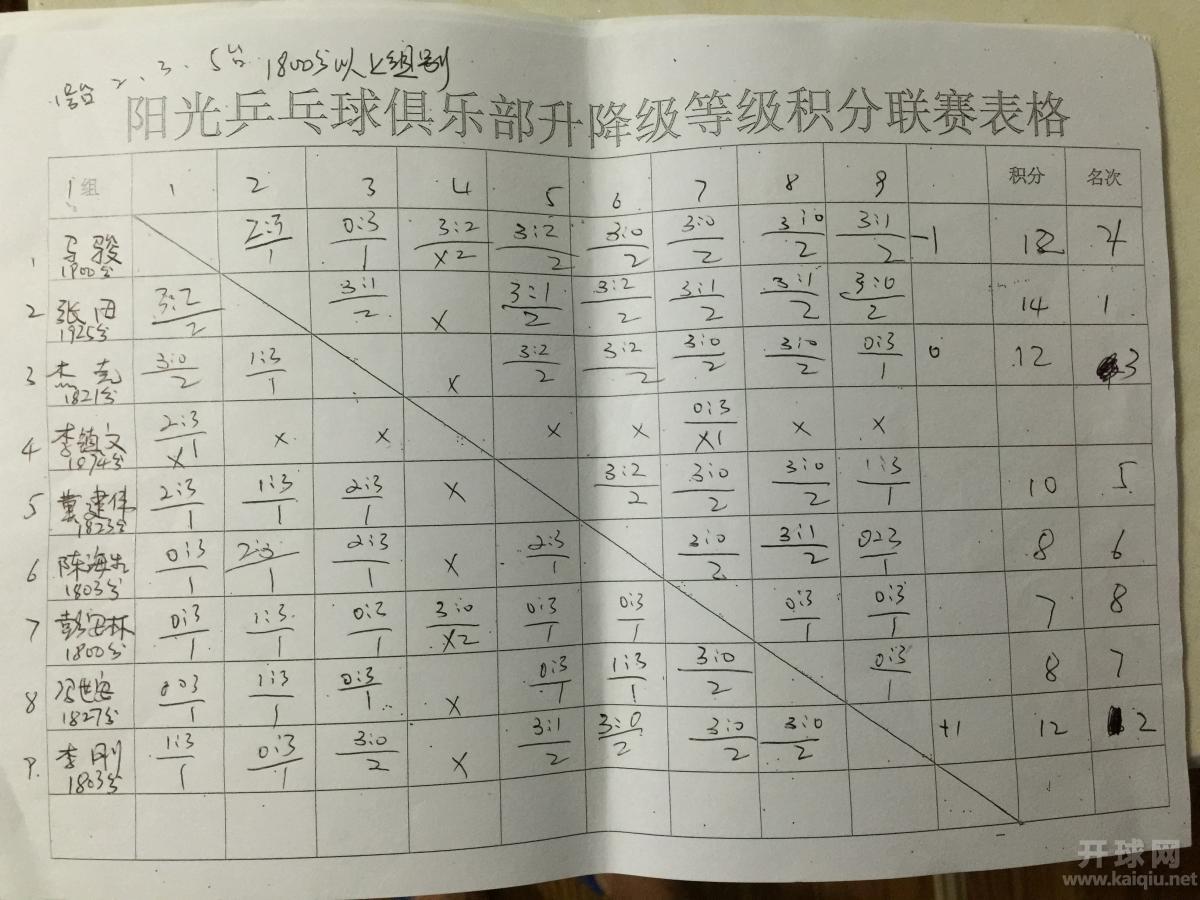 1号台 2、3、5台 1800分以上组别
阳光乒乓球俱乐部升降级等级积分联赛表格
1组 1 2 3 4 5 6 7 8 9 积分 名次
1 马骏 1900分 2:3/1 0:3/1 3:2/X2 3:2/2 3:0/2 3:0/2 3:0/2 3:1/2 -1 12 4
2 张 1925分 3:2/2 3:1/2 X 3:1/2 3:2/2 3:1/2 3:1/2 3:0/2 14 1
3 杰克 1821分 3:0/2 1:3/1 X 3:2/2 3:2/2 3:0/2 3:0/2 0:3/1 0 12 3
4 李镇文 1874分 2:3/X1 X X X X 0:3/X1 X X
5 建伟 1823分 2:3/1 1:3/1 2:3/1 X 3:2/2 3:0/2 3:0/2 1:3/1 10 5
6 陈海 1803分 0:3/1 2:3/1 2:3/1 X 2:3/1 3:0/2 3:1/2 0:3/1 8 6
7 彭 林 1800分 0:3/1 1:3/1 0:3/1 3:0/X2 0:3/1 0:3/1 0:3/1 0:3/1 7 8
8 1827分 0:3/1 1:3/1 0:3/1 X 0:3/1 1:3/1 3:0/2 0:3/1 8 7
9. 李刚 1803分 1:3/1 0:3/1 3:0/2 X 3:1/2 3:0/2 3:0/2 3:0/2 +1 12 2
开球网
www.kaiqiu.net